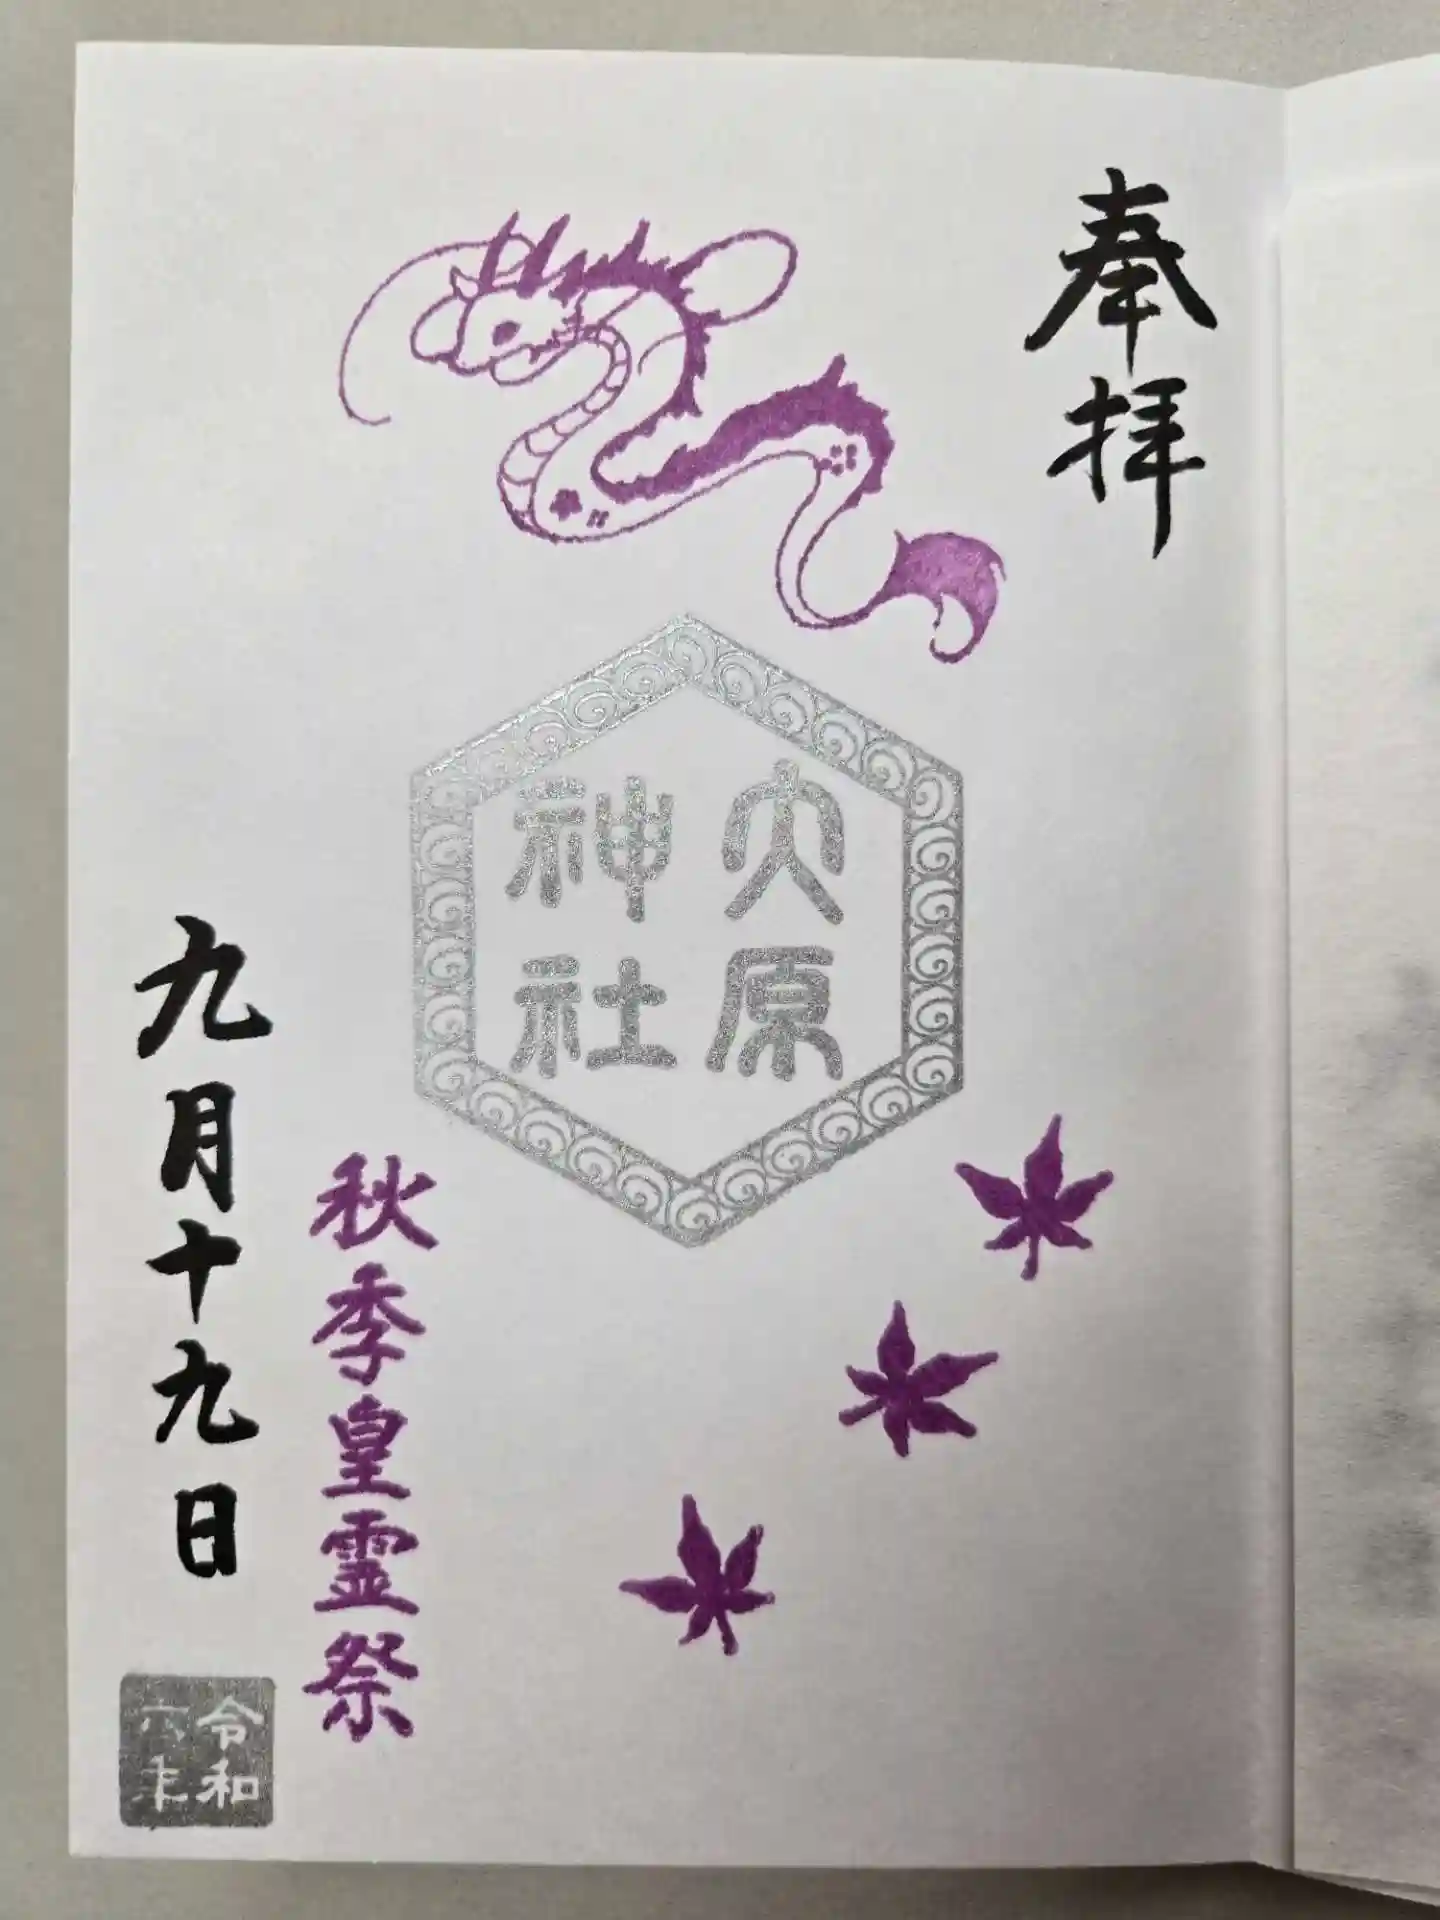 奉拝
大原
神社
秋季皇霊祭
九月十九日
令和
六年